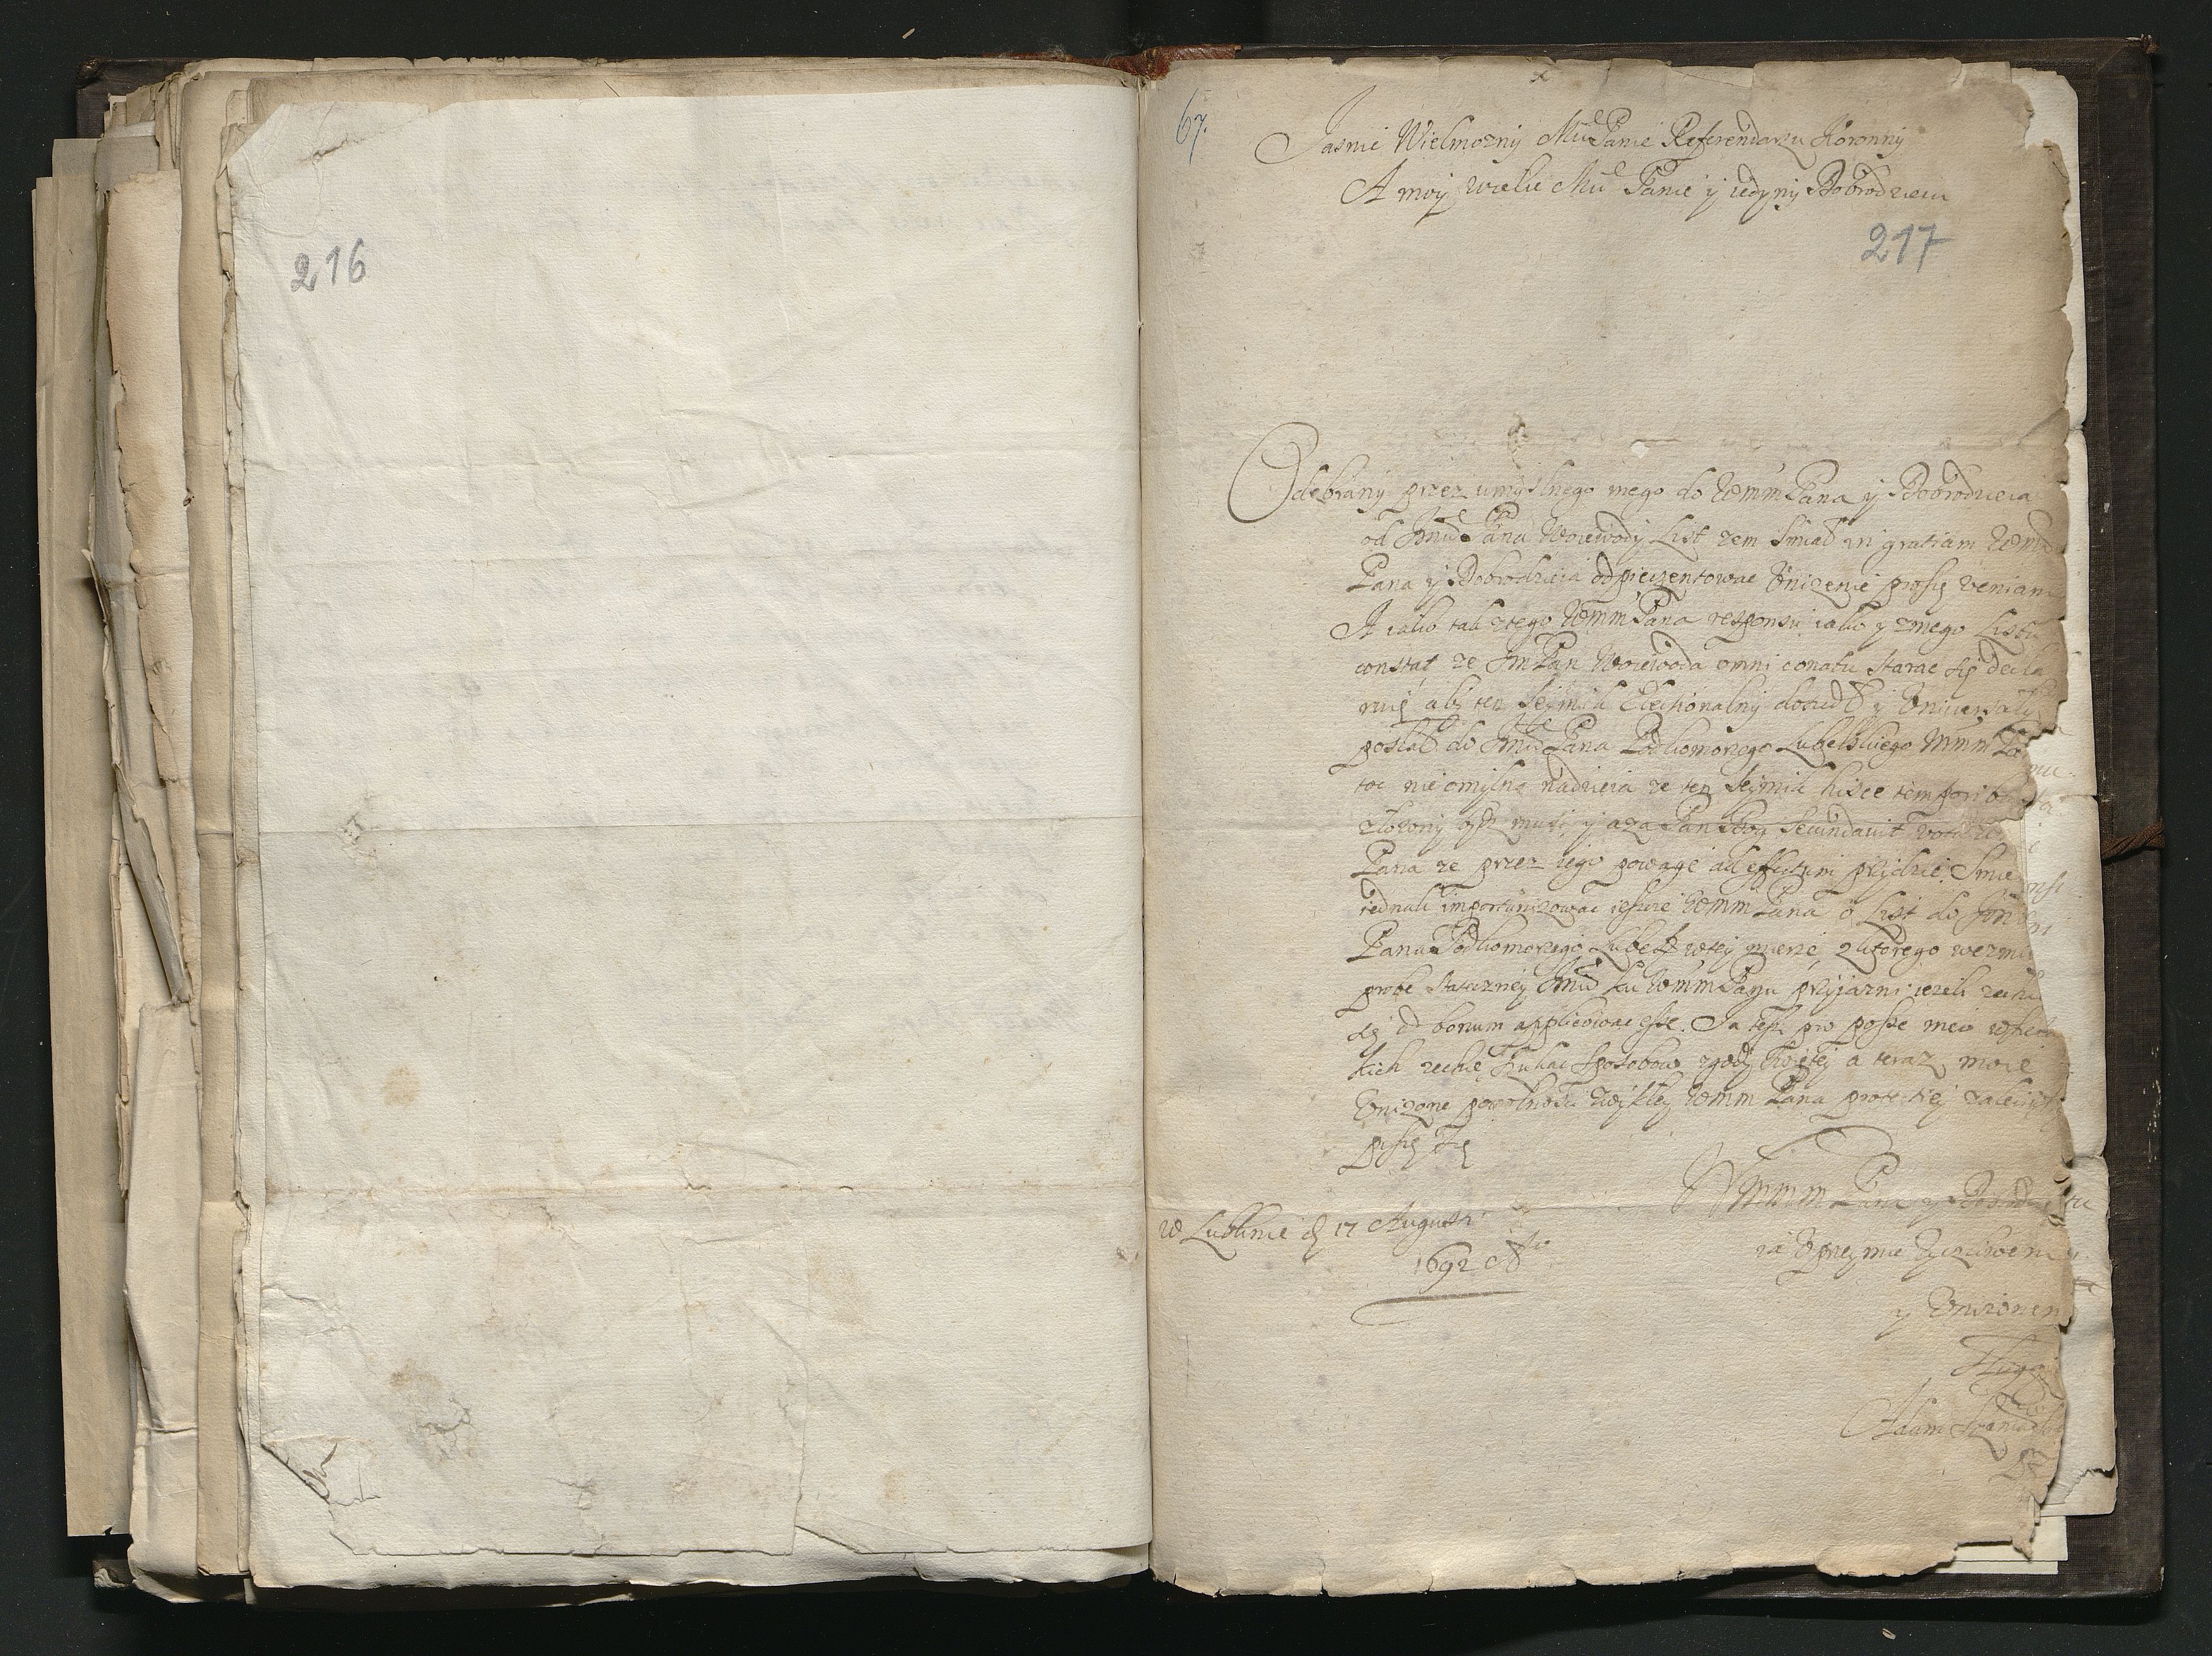 216
67.
Jasnie Wielmozny Mił Panie Referendarzu Koronny
A moy wielce Mił Panie y iedyny Dobrodzieiu
217
Odebrany przez umyslnego mego do WmmPana y Dobrodzieia
od Jmci Pana Woiewody List zem smiał in gratiam Wmm
Pana y Dobrodzieia odpieczentowac Unizenie proszę veniam
A iako tak z tego WmmPana responsu iako y z mego Listu
constat ze JmPan Woiewoda omni conatu starac się decla
ruię aby ten Seymik Electionalny doszedł y Uniwersały
posłał do Jmci Pana Podkomorzego Lubelskiego Mmm Pa
toc nie omylna nadzieia ze ten Seymik hisce tempori
złozony bydz musi y aza Pan Bog secundavit vota
Pana ze przez iego powagę ad effectum przydzie. Smie
iednak importunizowac ieszcze WmmPana o List do Jm
Pana Podkomorzego Lubel w tey mierze z ktorego wezmie
probe stateczney Jmci ku WmmPanu przyiazni iezeli zechce
się ad bonum applicowac esse. Ja tesz pro posse meo wszela
kich zechcę szukac sposobow zgody swiętey a teraz moie
Unizone powolnosci zwykłey Wmm Pana protectiey zaleciwszy
piszę się
Wmmm Pana y Dobrodzie
w Lublinie d 17 Augusti
1692 Ao
ia Uprzeymie Zyczliwem
y Unizonem
Sługą
Adam